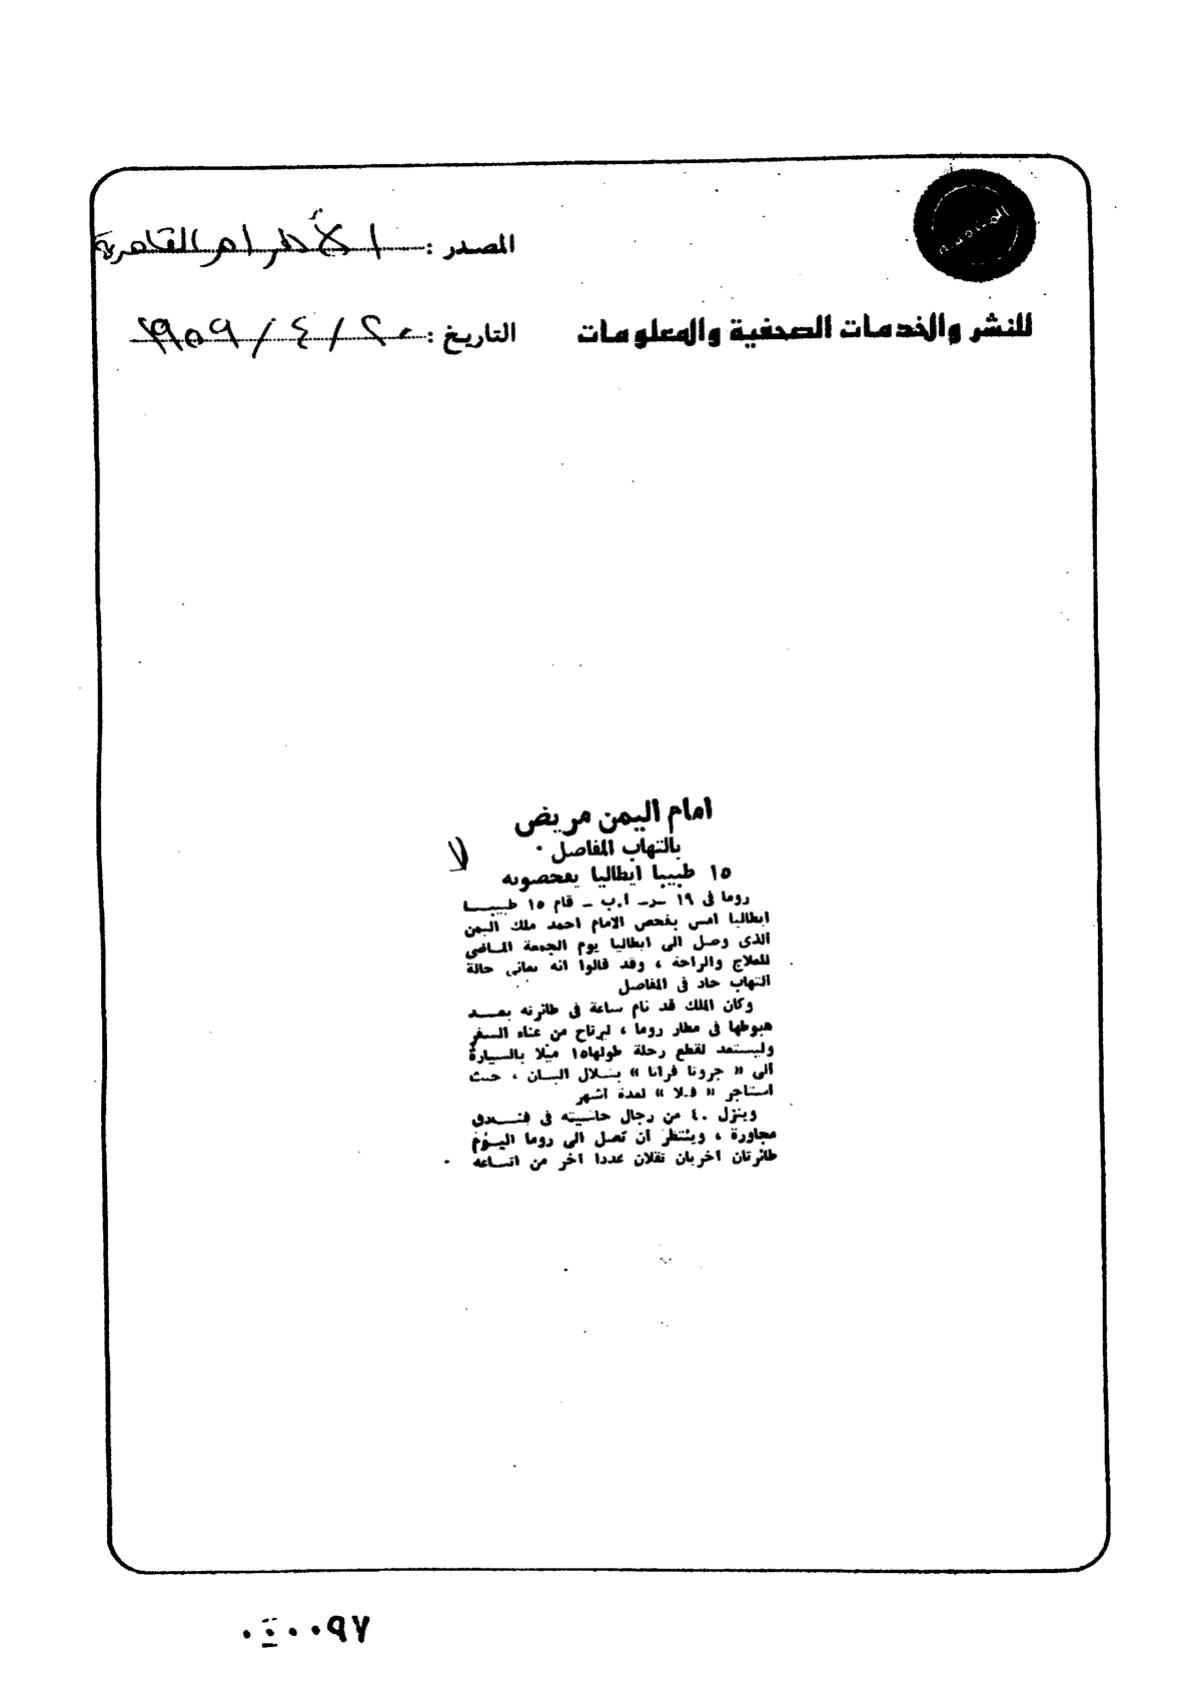 المصدر: الأهرام القاهرية
للنشر والخدمات الصحفية والمعلومات
التاريخ: ٢٠ / ٤ / ١٩٥٩
امام اليمن مريض
بالتهاب المفاصل
١٥ طبيبا ايطاليا يفحصونه
روما فى ١٩ ـ ر ـ ا.ب ـ قام ١٥ طبيبا
ايطاليا امس بفحص الامام احمد ملك اليمن
الذى وصل الى ايطاليا يوم الجمعة الماضى
للعلاج والراحة ، وقد قالوا انه يعانى حالة
التهاب حاد فى المفاصل
وكان الملك قد نام ساعة فى طائرته بعد
هبوطها فى مطار روما ، ليرتاح من عناء السفر
وليستعد لقطع رحلة طولها ١٥ ميلا بالسيارة
الى « جروتا فراتا » بتلال البان ، حيث
استاجر « فيلا » لمدة اشهر
وينزل ٤٠ من رجال حاشيته فى فندق
مجاورة ، وينتظر ان تصل الى روما اليوم
طائرتان اخريان تقلان عددا اخر من اتباعه
٩٧